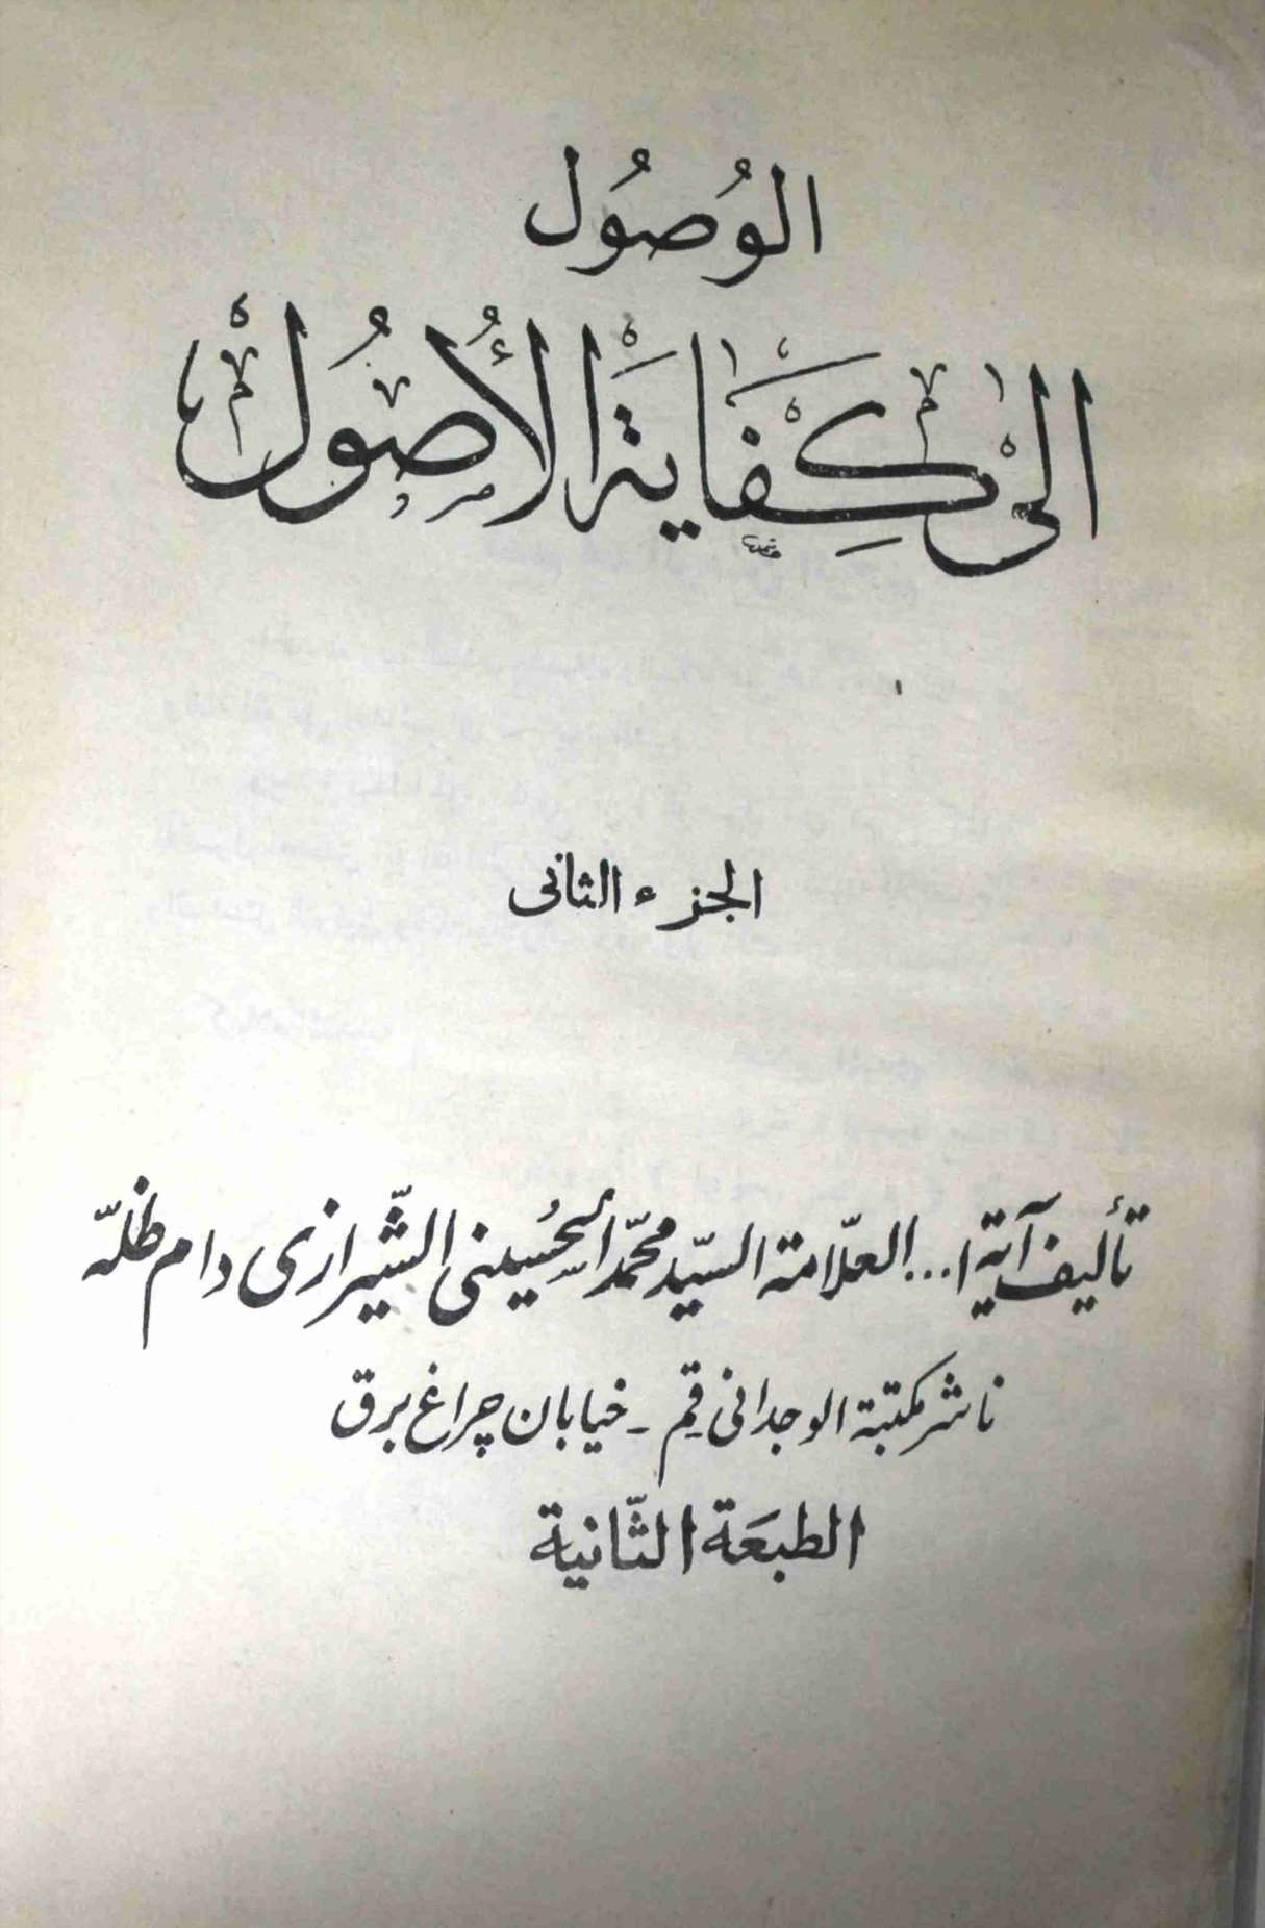 الوُصُول
الى كِفَايَة الأُصُول
الجزء الثانى
تأليف آية ا... العلّامة السيّد محمّد الحُسينى الشّيرازى دام ظلّه
ناشر مكتبة الوجدانى قم - خيابان چراغ برق
الطبعَة الثّانية